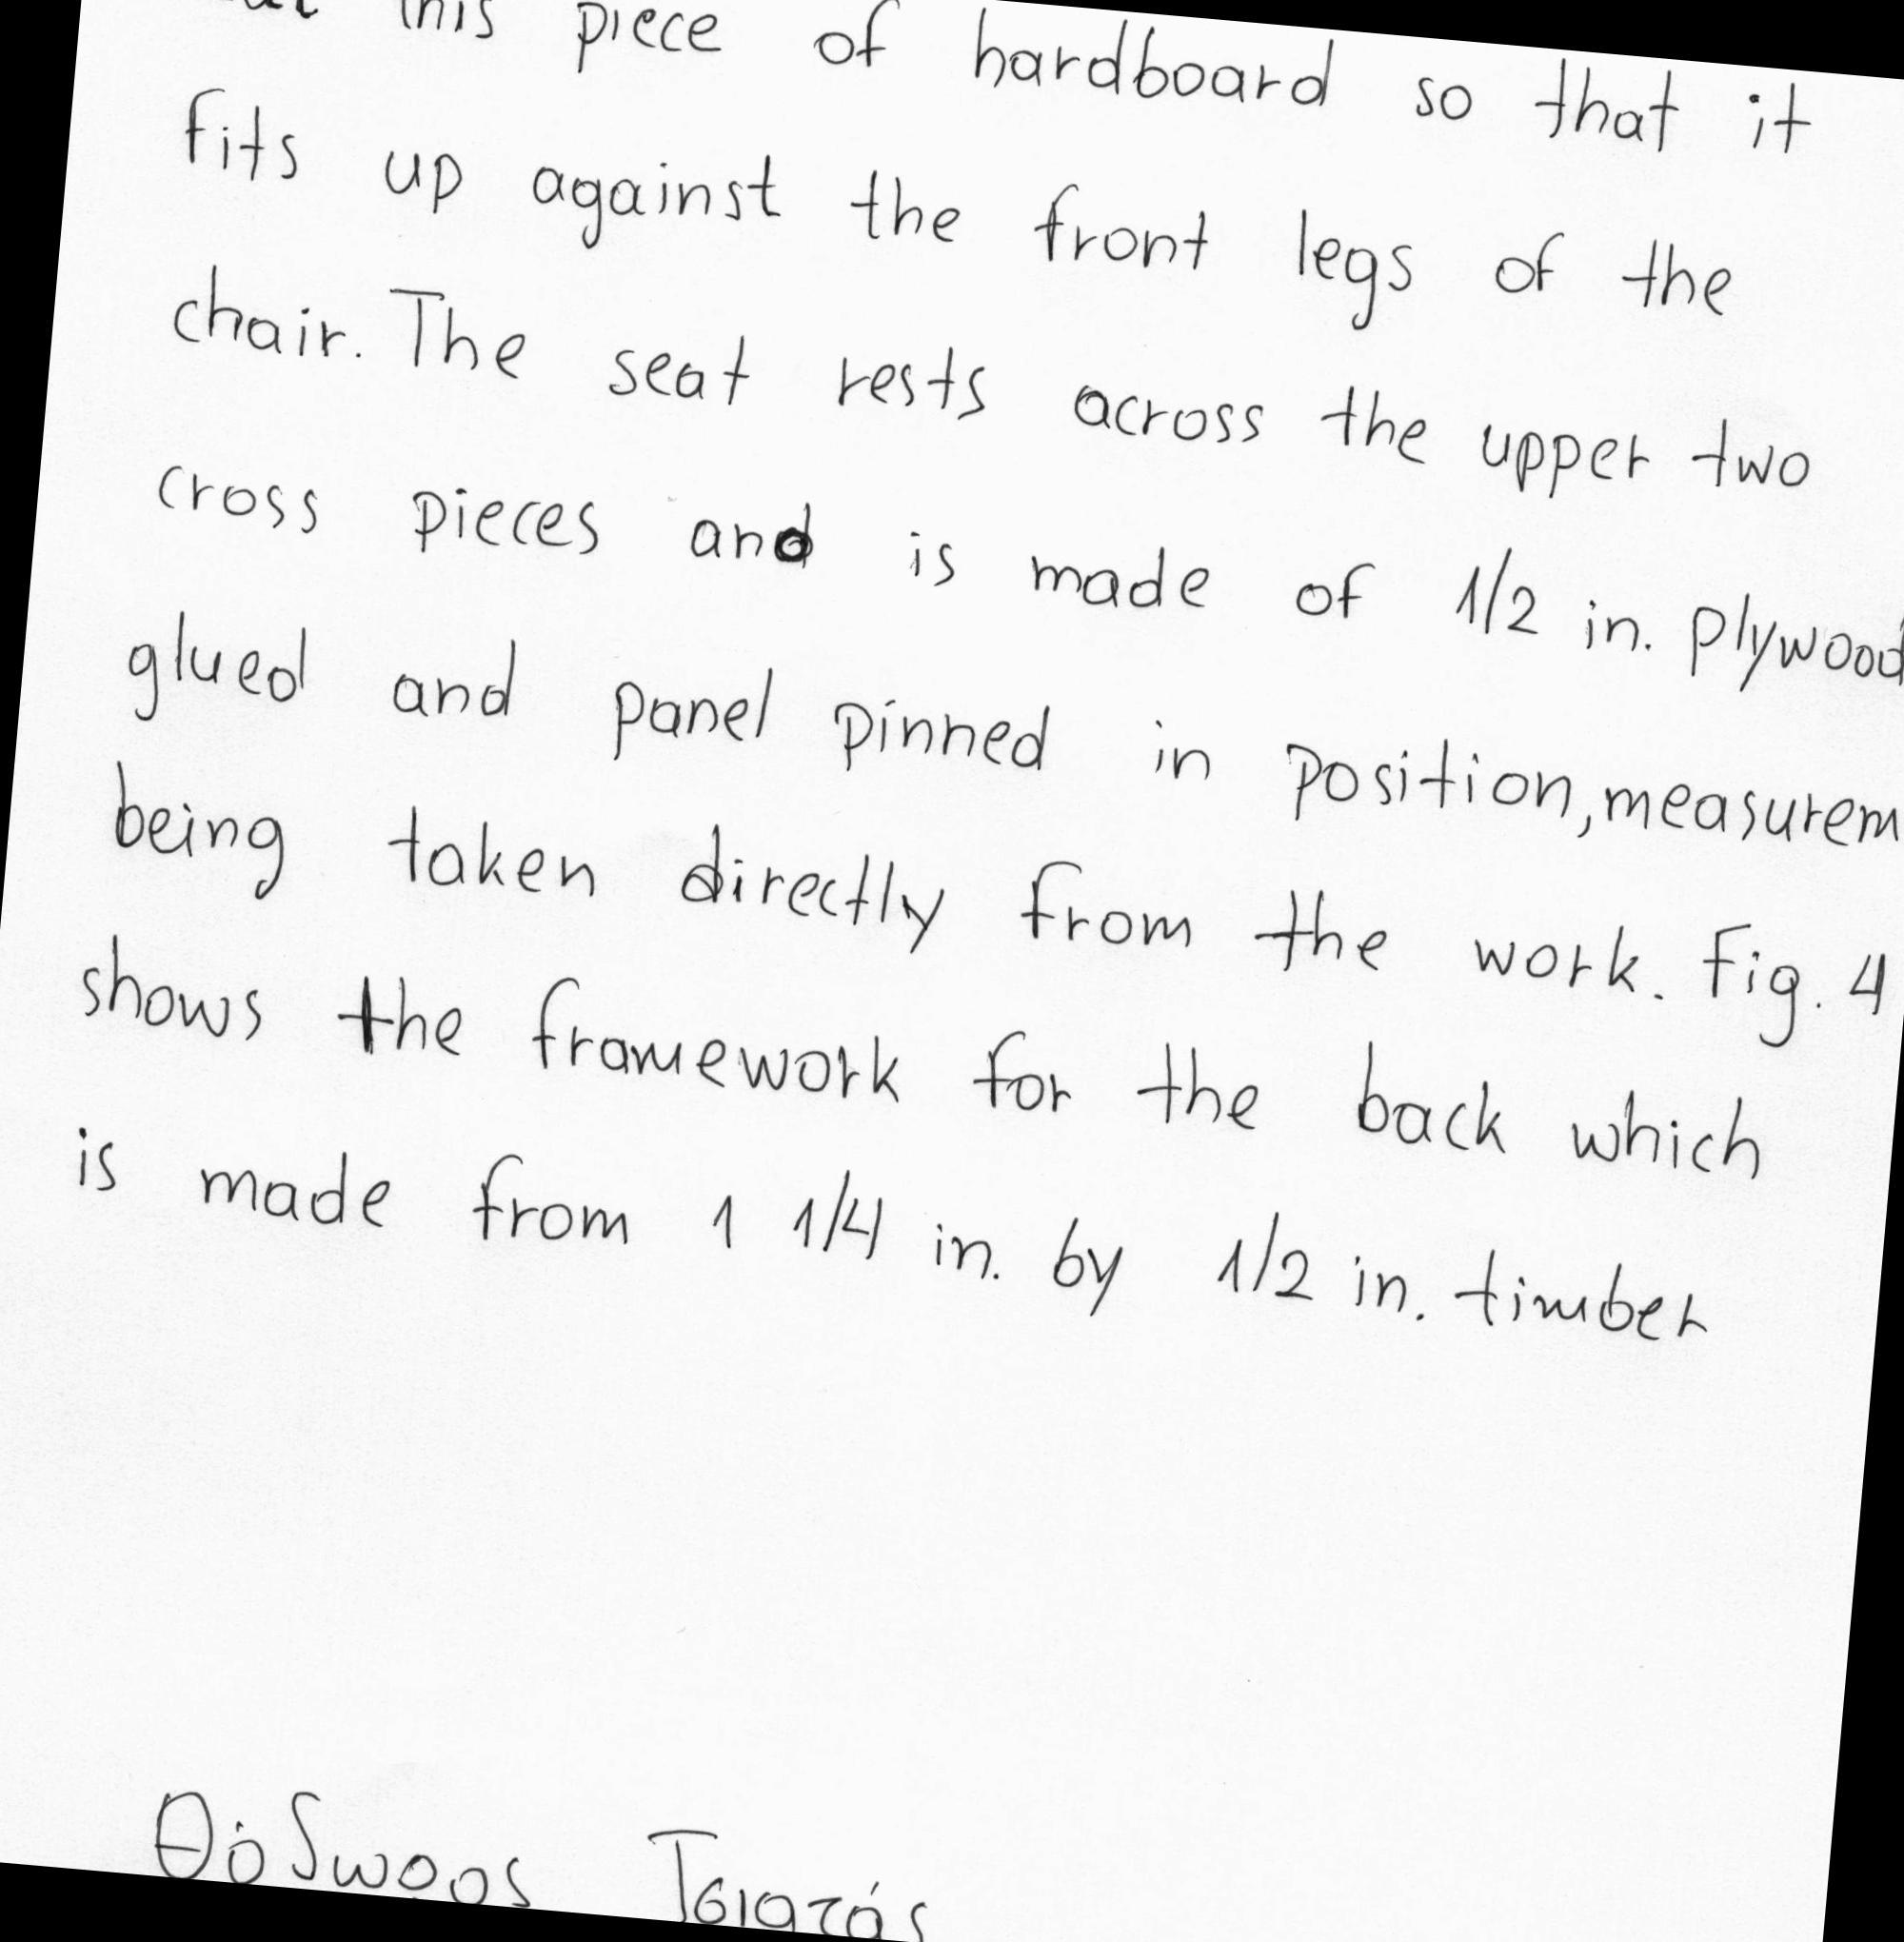 this piece of hardboard so that it
fits up against the front legs of the
chair. The seat rests across the upper two
cross pieces and is made of 1/2 in. plywood
glued and panel pinned in position, measurem
being taken directly from the work. Fig. 4
shows the framework for the back which
is made from 1 1/4 in. by 1/2 in. timber
Θόδωρος Τσιατάς